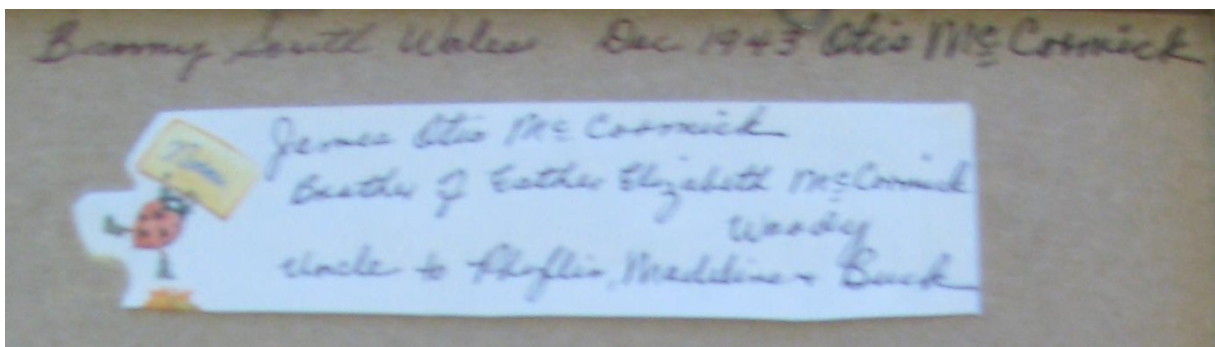 South Wales Dec 1943 Otis McCormick
James Otis McCormick
Brother of Esther Elizabeth McCormick
Woody
Uncle to Phyllis, Madeline + Buck